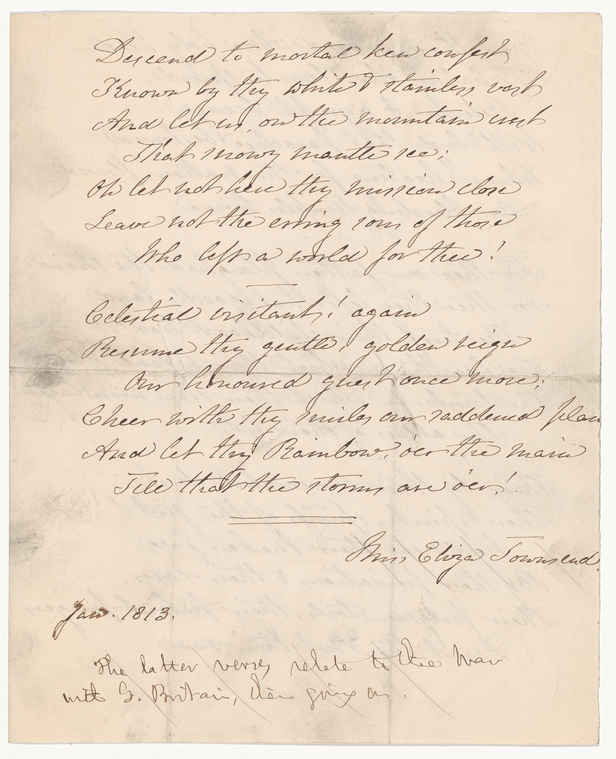 Descend to mortal ken confest
Known by thy white & stainless vest
And let us, on the mountain crest
That snowy mantle see:
Oh let not here thy mission close
Leave not the erring sons of those
Who left a world for thee!
Celestial visitant! again
Resume thy gentle, golden reign
Our honoured guest once more;
Cheer with thy smiles our saddened plain
And let thy Rainbow, o'er the main
Tell that the storms are o'er!
Miss Eliza Townsend.
Jan. 1813.
The latter verses relate to the War
with G. Britain, then going on.